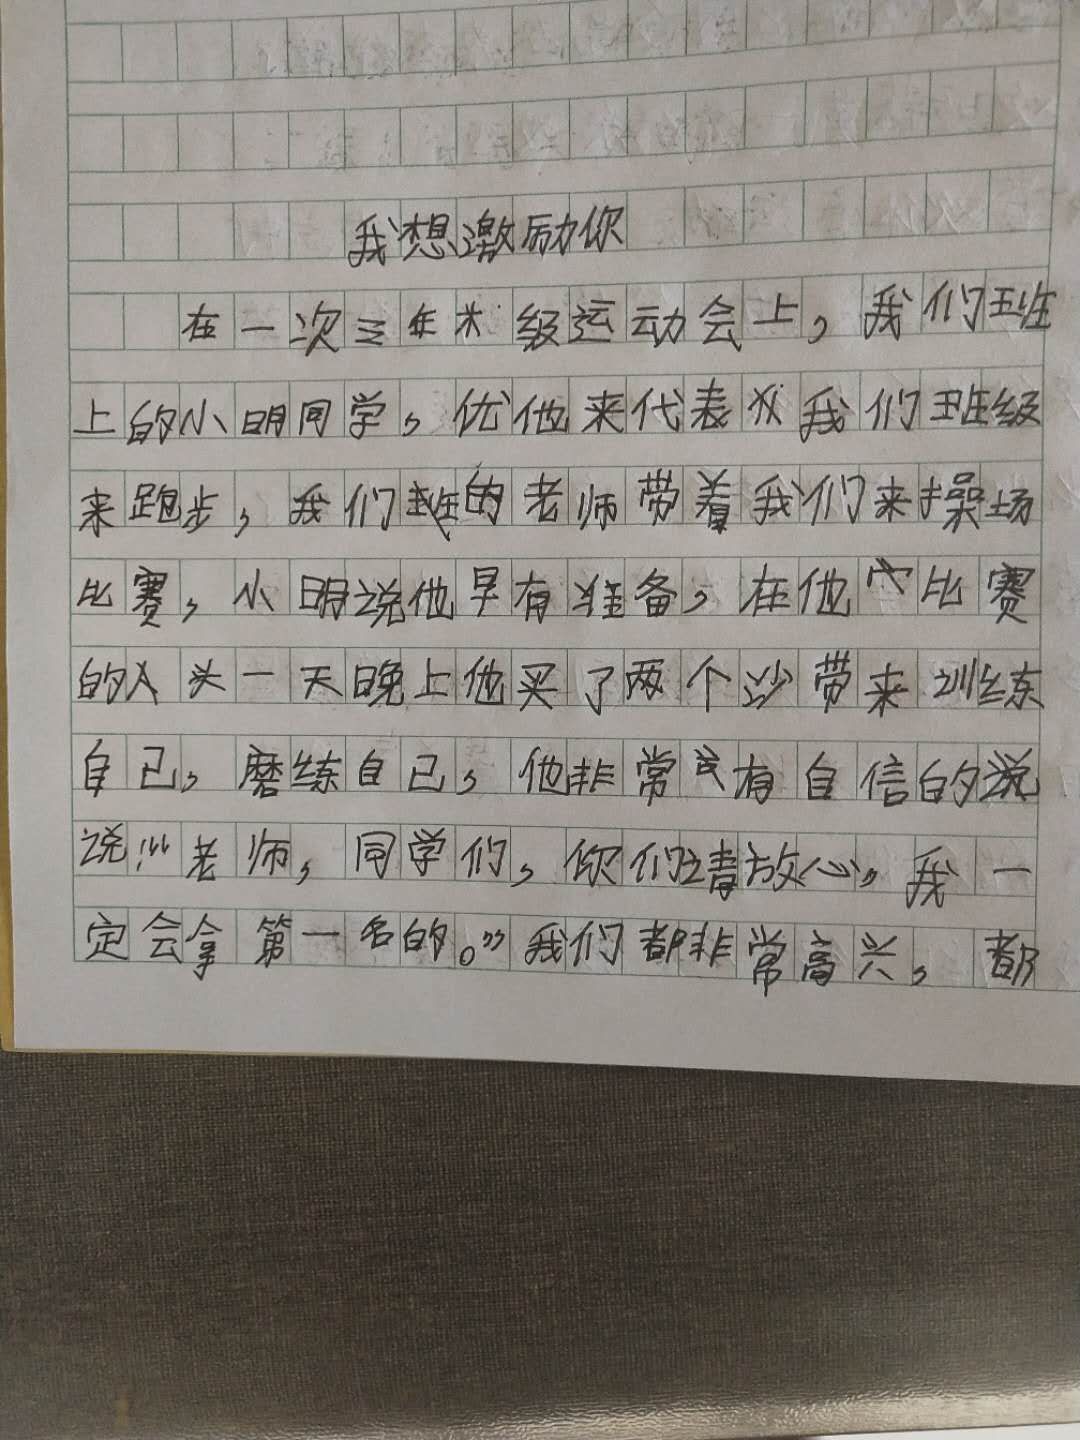 我想激励你
在一次三年级运动会上，我们班
上的小明同学，优他来代表我们班级
来跑步，我们班的老师带着我们来操场
比赛，小明说他早有准备，在他比赛
的头一天晚上他买了两个沙带来训练
自己，磨练自己，他非常有自信的说
说:"老师，同学们，你们请放心，我一
定会拿第一名的。"我们都非常高兴，都